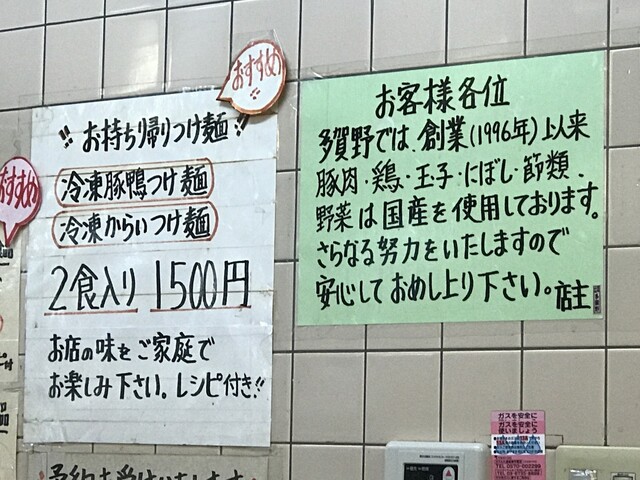 おすすめ!!
おすすめ
!! お持ち帰りつけ麺 !!
冷凍豚鴨つけ麺
冷凍からいつけ麺
2食入り 1500円
お店の味をご家庭で
お楽しみ下さい。レシピ付き!!
お客様各位
多賀野では、創業(1996年)上以来
豚肉・鶏・玉子・にぼし・節類、
野菜は国産を使用しております。
さらなる努力をいたしますので
安心しておめし上り下さい。店主
ガスを安全に
使いましょう